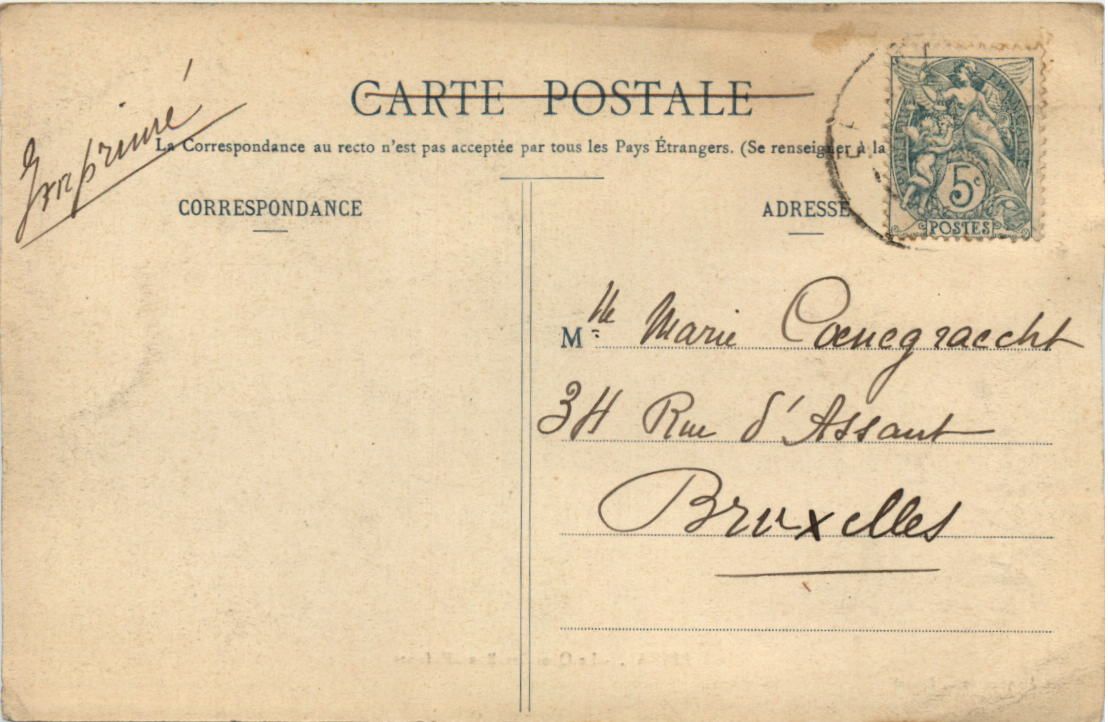 Imprimé
CARTE POSTALE
La Correspondance au recto n'est pas acceptée par tous les Pays Étrangers. (Se renseigner à la
CORRESPONDANCE
ADRESSE
5c
POSTES
Mlle Marie Coenegracht
34 Rue d'Assaut
Bruxelles